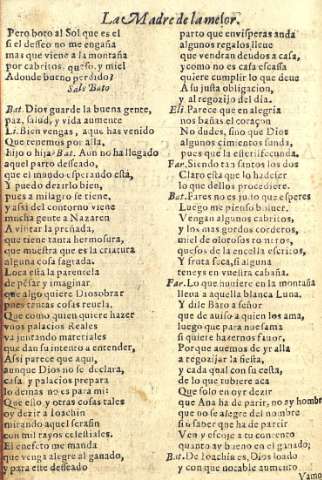 La Madre de la mejor.
Pero boto al Sol que es el
si el desseo no me engaña
mas que viene a la montaña
por cabritos, queso, y miel
Adonde bueno perdido?
Sale Bato
Bat. Dios guarde la buena gente,
paz, salud, y vida aumente
Li. Bien vengas, aqui has venido
Que tenemos por alla,
hijo o hija? Bat. Aun no ha llegado
aquel parto desseado,
que el mundo esperando està,
Y puedo dezirlo bien,
pues a milagro se tiene,
y assi del contorno viene
mucha gente a Nazaren
A visitar la preñada,
que tiene tanta hermosura,
que muestra que es la criatura
alguna cosa sagrada.
Loca està la parentela
de pensar y imaginar
que algo quiere Dios obrar
pues tantas cosas reuela.
Que como quien quiere hazer
vnos palacios Reales
va juntando materiales
que dan su intento a entender,
Assi parece que aqui,
aunque Dios no se declara,
casa y palacios prepara
lo demas no es para mi:
Que esso y otras cosas tales
oy dezir a Ioachin
mirando aquel serafin
con mil rayos celestiales.
El en efeto me manda
que venga alegre al ganado,
y para este desseado
parto que en visperas anda
algunos regalos lleue
que vendran deudos a casa,
y como no es casa escassa
quiere cumplir lo que deue
A su justa obligacion,
y al regozijo del dia.
Eli. Parece que en alegria
nos bañas el coraçon
No dudes, sino que Dios
algunos cimientos funda,
pues que la esteril fecunda.
Far. Siendo tan santos los dos
Claro està que lo ha de ser
lo que dellos procediere.
Bat. Fares no es justo que esperes
Luego me pienso bolner.
Vengan algunos cabritos,
y los mas gordos corderos,
miel de olorosos romeros,
quesos de la encella escritos,
Y fruta seca, si alguna
teneys en vuestra cabaña.
Far. Lo que huuiere en la montaña
lleua a aquella blanca Luna.
Y dile Bato a señor
que de auiso a quien los ama,
luego que para nuesama
si quiere hazernos fauor,
Porque auemos de yr alla
a regozijar la fiesta,
y cada qual con su cesta,
de lo que tubiere aca
Que solo en oyr dezir
que Ana ha de parir, no ay hombre
que no se alegre del nombre
si saber que ha de parir
Ven y escoje a tu contento
quanto ay bueno en el ganado;
Bat. De Ioachin es, Dios loado
y con que notable aumento
Vamo